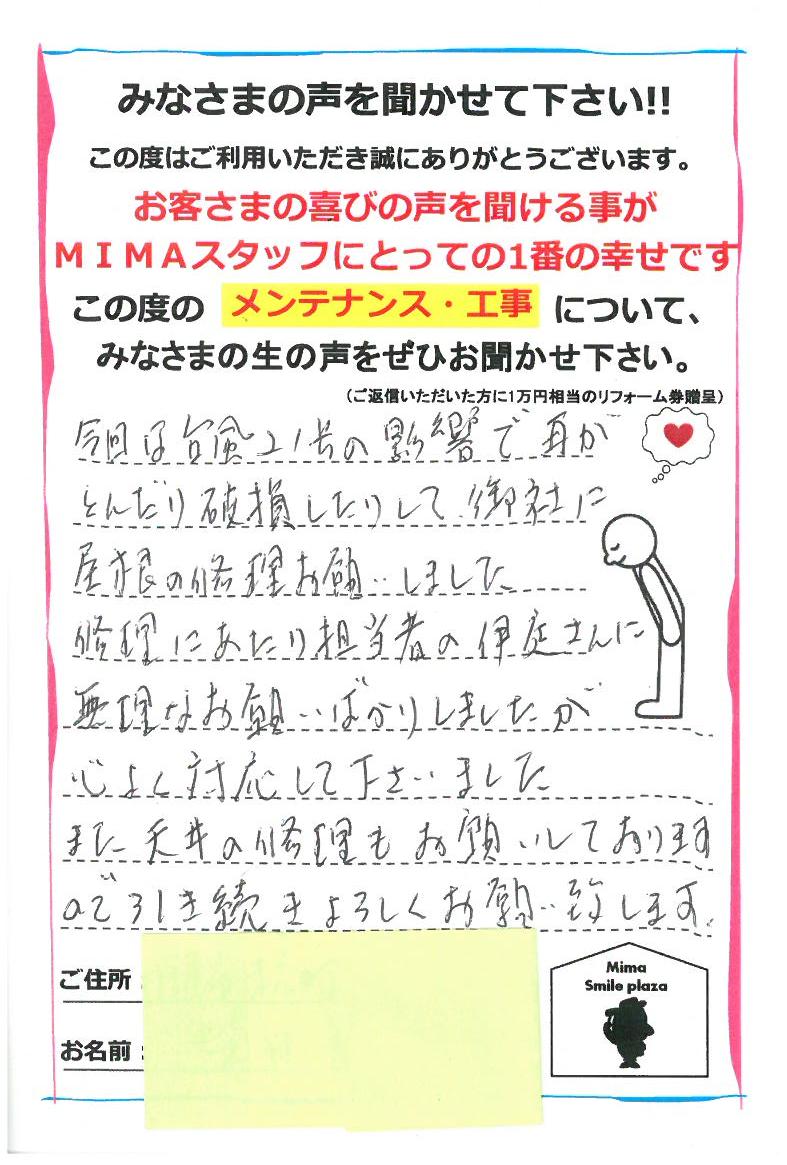 みなさまの声を聞かせて下さい!!
この度はご利用いただき誠にありがとうございます。
お客さまの喜びの声を聞ける事が
MIMAスタッフにとっての1番の幸せです
この度の メンテナンス・工事 について、
みなさまの生の声をぜひお聞かせ下さい。
（ご返信いただいた方に1万円相当のリフォーム券贈呈）
今回は台風21号の影響で瓦が
とんだり破損したりして御社に
屋根の修理お願いしました
修理にあたり担当者の伊庭さんに
無理なお願いばかりしましたが
心よく対応して下さいました
また天井の修理もお願いしております
ので引き続きよろしくお願い致します。
ご住所：
お名前：
Mima
Smile plaza